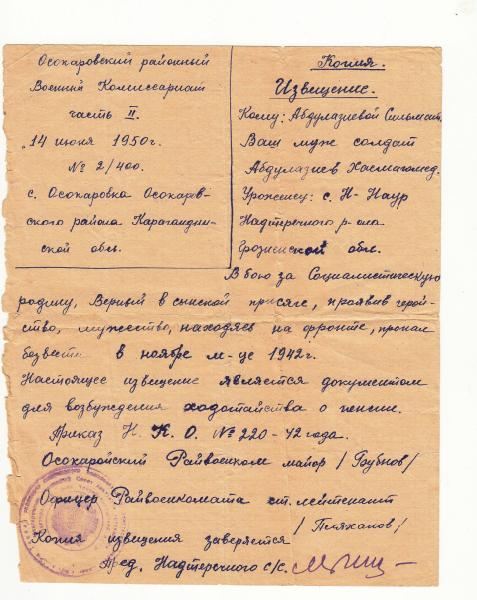 Осокаровский районный
Военный Комиссариат
часть II.
"14 июня 1950г.
№ 2/400.
с. Осокаровка Осокаров-
ского района Карагандин-
ской обл.
Копия.
Извещение.
Кому: Абдулазиевой Сильмат.
Ваш муж солдат
Абдулазиев Хасмагомед.
Уроженец: с. Н-Наур
Надтеречного р-она
Грозненской обл.
В бою за Социалистическую
родину, Верный в сынской присяге, проявив герой-
ство, мужество, находясь на фронте, пропал
безвести в ноябре м-це 1942г.
Настоящее извещение является документом
для возбуждения ходатайства о пенсии.
Приказ Н. К. О. № 220-42 года.
Осокаройский Райвоенком майор /Бубнов/
Офицер Райвоенкомата ст. лейтенант
/Пляханов/
Копия извещения заверяется
Пред. Надтеречного с/с.